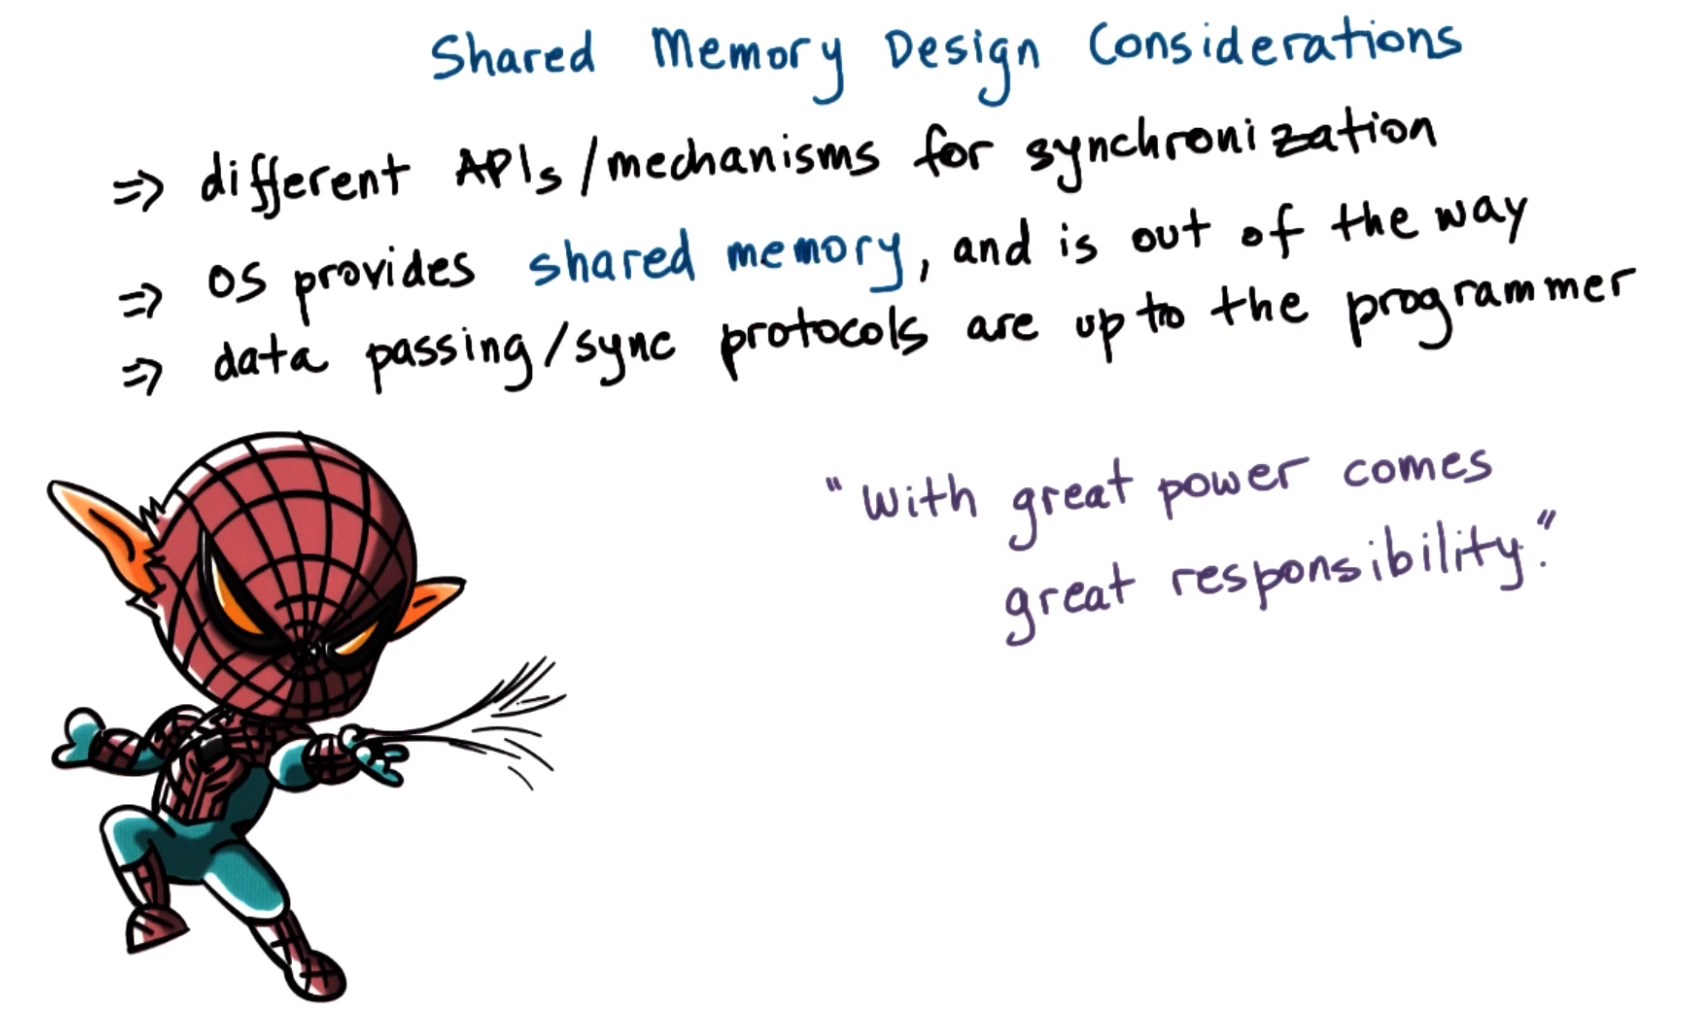 Shared Memory Design Considerations
=> different APIs/mechanisms for synchronization
=> OS provides shared memory, and is out of the way
=> data passing/sync protocols are up to the programmer
"with great power comes
great responsibility."